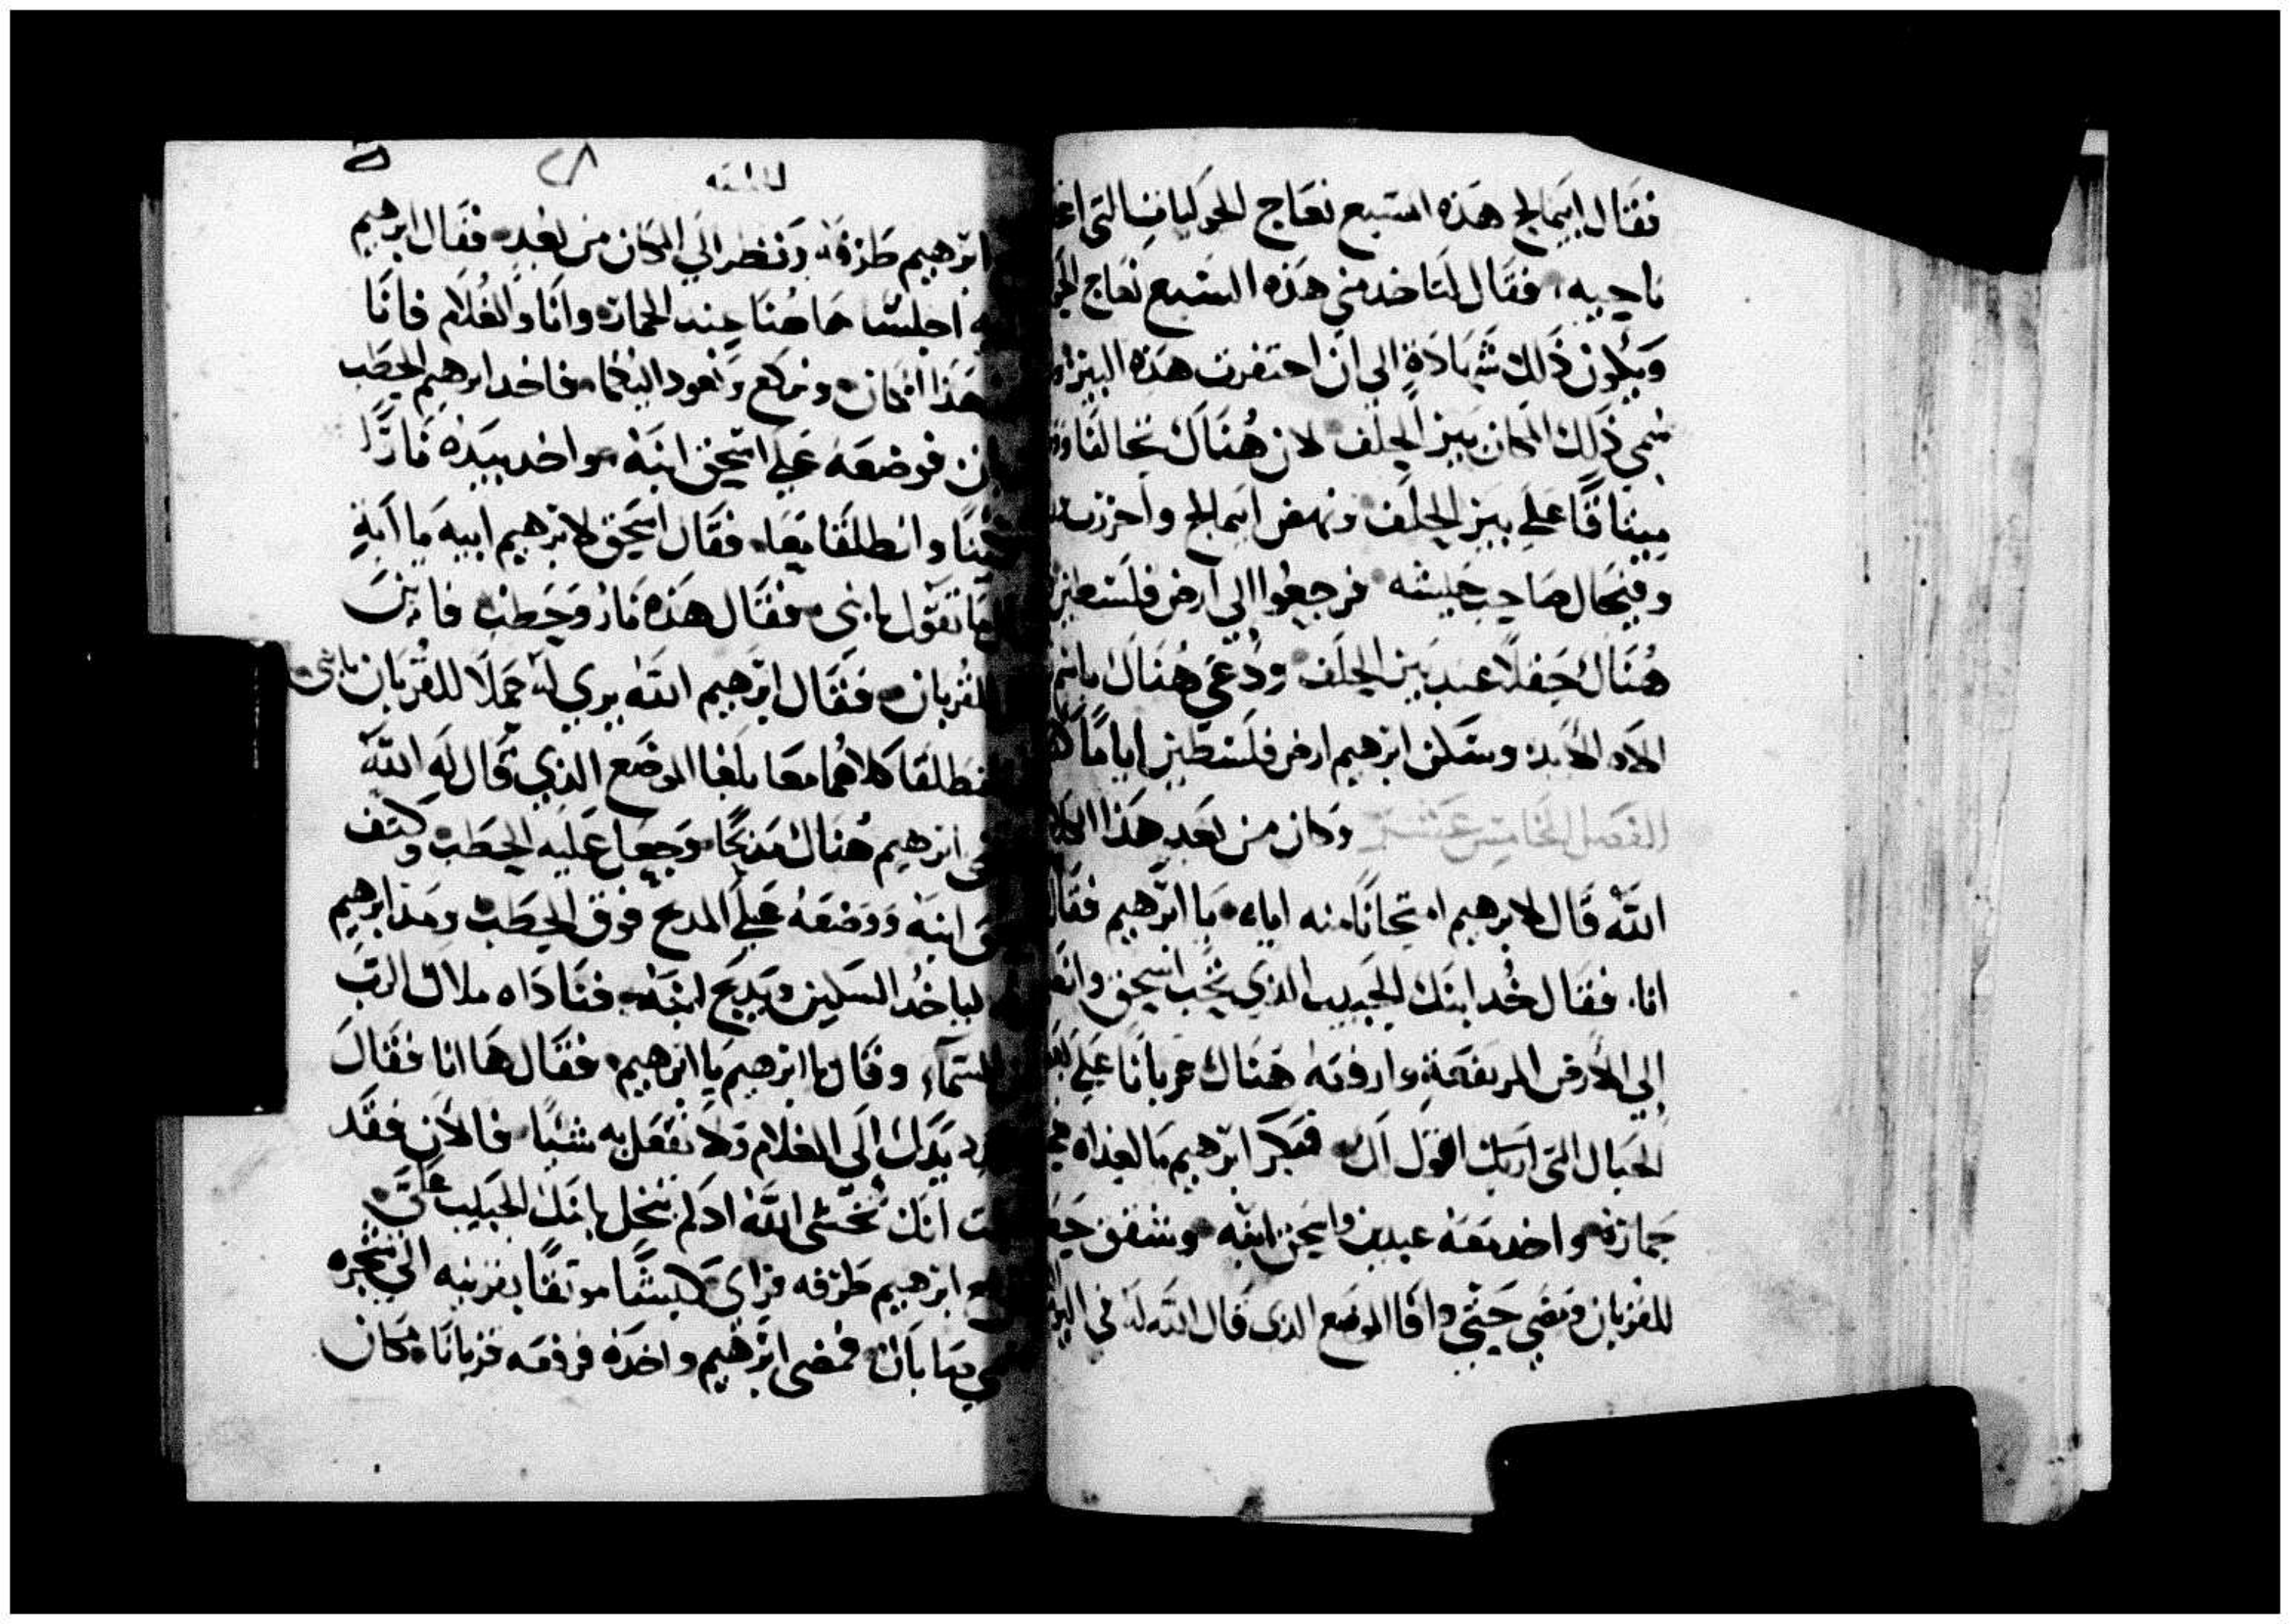 فقال ابيمالخ هذه السبع نعاج الحوليات التي
ناحيه، فقال لتاخد مني هذه السبع نعاج
ويكون ذلك شهادة الي ان احتفرت هذه البير
سمي ذلك المكان بير الحلف لان هناك تحالفا
ميثاقا علي بير الحلف ونهض ابيمالخ
وفيخال صاحب جيشه فرجعوا الي ارض فلسطين
هناك حقلا عند بير الحلف ودعي هناك باسم
الاه الابد وسكن ابرهيم ارض فلسطين اياما
الفصل الخامس عشر وكان من بعد هذا الكلام
الله قال لابرهيم امتحانا منه اياه يا ابرهيم فقال
انا. فقال خد ابنك الحبيب الذي تحب اسحق
إلي الأرض المرتفعة وارفعه هناك قربانا علي
الجبال التي اريك اقول لك فبكر ابرهيم بالغداه
حمارته واخد معه عبدين واسحق ابنه وشقق
للقربان ومضي حتي وافا الموضع الدي قال الله له في
ابرهيم طرفه ونظر الي المكان من بعد فقال ابرهيم
اجلسا هاهنا عند الحمارة وانا والغلام فانا
هذا المكان ونركع ونعود اليكما فاخد ابرهيم الحطب
فوضعه علي اسحق ابنه واخد بيده نارا
وانطلقا معا فقال اسحق لابرهيم ابيه يا ابة
ما تقول يا بني فقال هذه نار وحطب فاين
القربان فقال ابرهيم الله يري له حملا للقربان يا بني
فنطلقا كلاهما معا بلغا الموضع الذي قال له الله
ابرهيم هناك مدبحا وجعل عليه الحطب وكتف
ابنه ووضعه علي المدبح فوق الحطب ومد ابرهيم
لياخد السكين ويدبح ابنه فناداه ملاك الرب
السماء وقال يا ابرهيم يا ابرهيم فقال ها انا فقال
يدك إلي الغلام ولا تفعل به شيا فالان فقد
انك تخشي الله اد لم تبخل بابنك الحبيب علي
ابرهيم طرفه فراي كبشا موثقا بقرنيه الي شجره
فمضي ابرهيم واخده فرفعه قربانا مكان